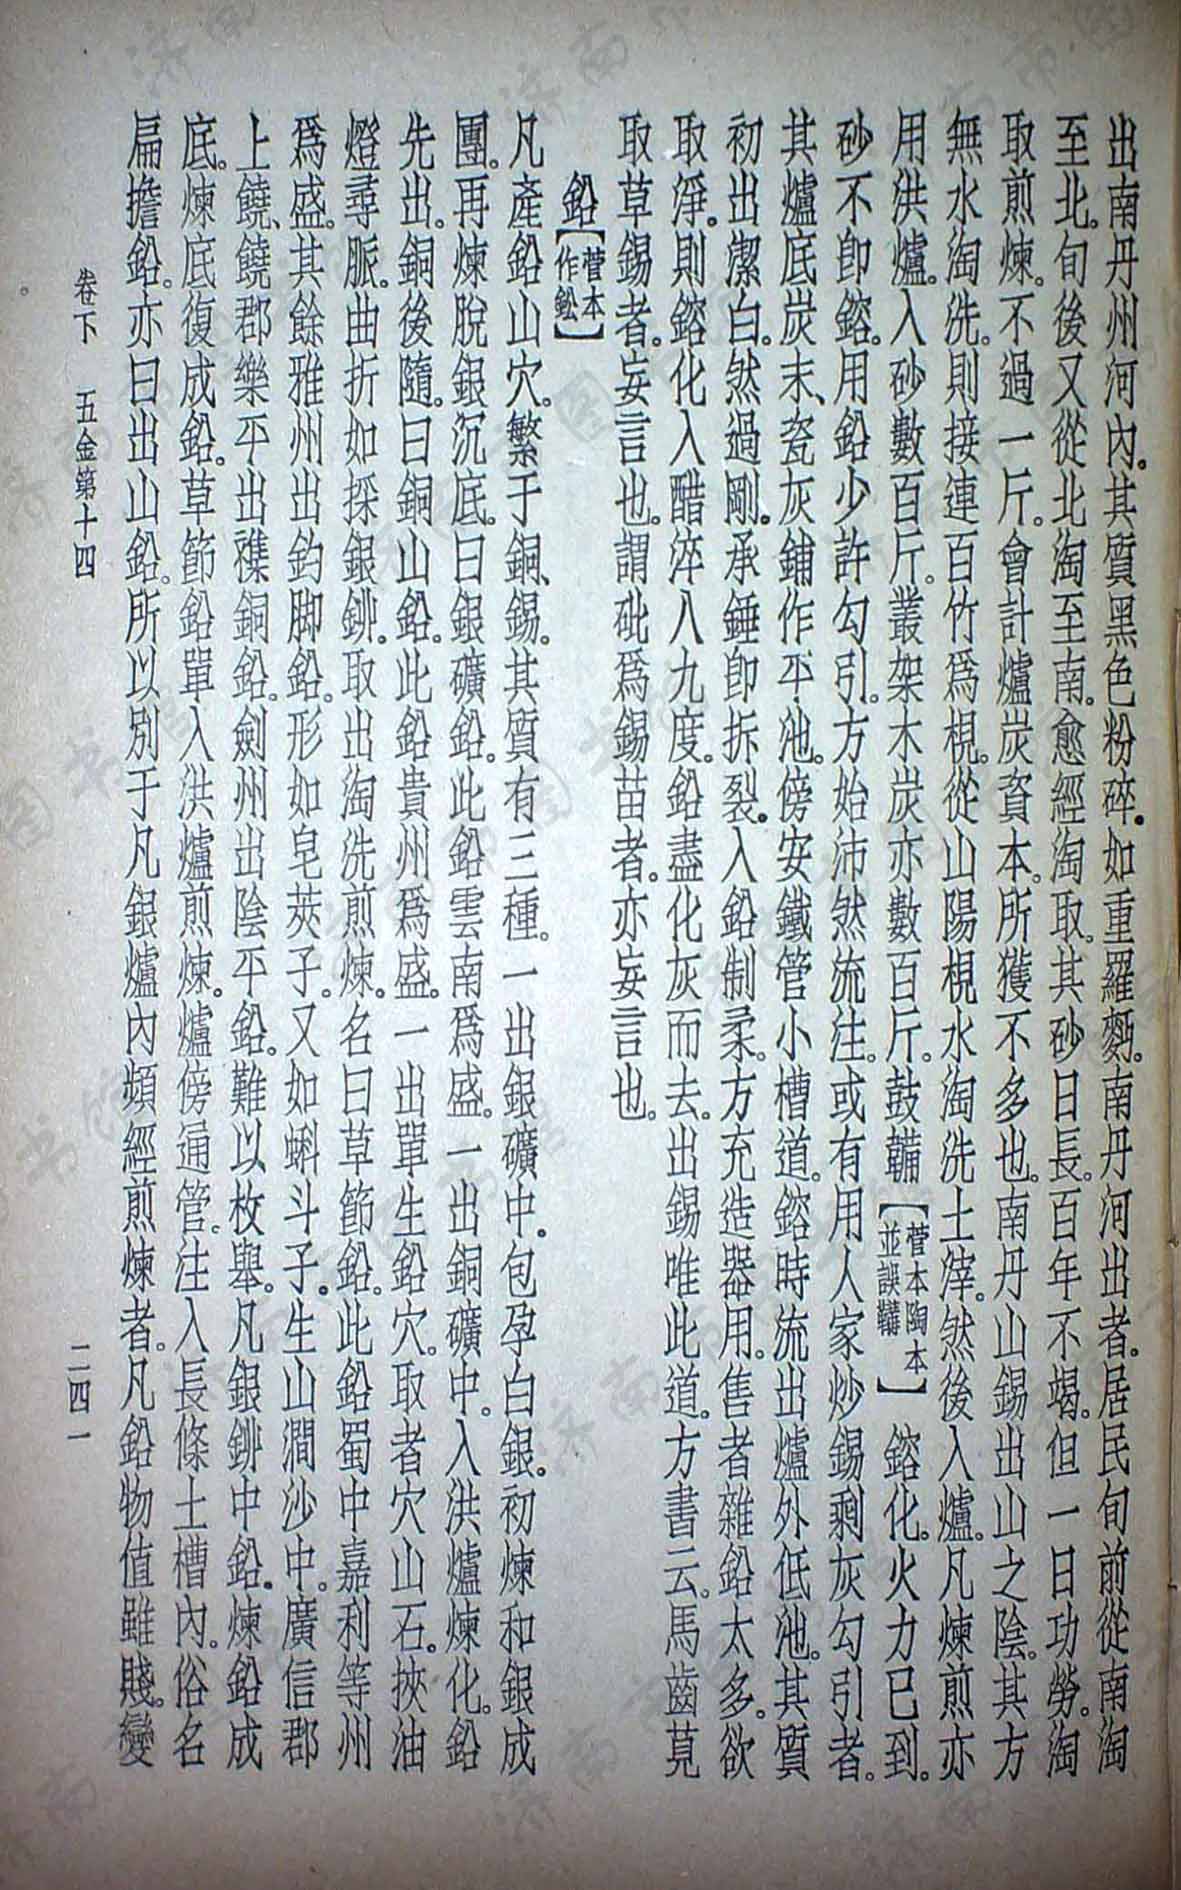 出南丹州河內。其質黑色粉碎。如重羅麪。南丹河出者。居民旬前從南淘
至北。旬後又從北淘至南。愈經淘取。其砂日長。百年不竭。但一日功勞。淘
取煎煉。不過一斤。會計爐炭資本。所獲不多也。南丹山錫出山之陰。其方
無水淘洗。則接連百竹爲梘。從山陽梘水淘洗土滓。然後入爐。凡煉煎亦
用洪爐。入砂數百斤。叢架木炭亦數百斤。鼓鞴【菅本陶本並誤韝】鎔化。火力已到。
砂不卽鎔。用鉛少許勾引。方始沛然流注。或有用人家炒錫剩灰勾引者。
其爐底炭末、瓷灰鋪作平池。傍安鐵管小槽道。鎔時流出爐外低池。其質
初出潔白。然過剛。承錘卽拆裂。入鉛制柔。方充造器用。售者雜鉛太多。欲
取淨。則鎔化入醋淬八九度。鉛盡化灰而去。出錫唯此道。方書云。馬齒莧
取草錫者。妄言也。謂砒爲錫苗者。亦妄言也。
鉛【菅本作鈆】
凡產鉛山穴。繁于銅、錫。其質有三種。一出銀礦中。包孕白銀。初煉和銀成
團。再煉脫銀沉底。曰銀礦鉛。此鉛雲南爲盛。一出銅礦中。入洪爐煉化。鉛
先出。銅後隨。曰銅山鉛。此鉛貴州爲盛。一出單生鉛穴。取者穴山石。挾油
燈尋脈。曲折如採銀鉚。取出淘洗煎煉。名曰草節鉛。此鉛蜀中嘉利等州
爲盛。其餘雅州出釣脚鉛。形如皂莢子。又如蝌斗子。生山澗沙中。廣信郡
上饒、饒郡樂平出襍銅鉛。劍州出陰平鉛。難以枚舉。凡銀鉚中鉛。煉鉛成
底。煉底復成鉛。草節鉛單入洪爐煎煉。爐傍通管。注入長條土槽內。俗名
扁擔鉛。亦曰出山鉛。所以別于凡銀爐內頻經煎煉者。凡鉛物值雖賤。變
卷下　五金第十四　二四一